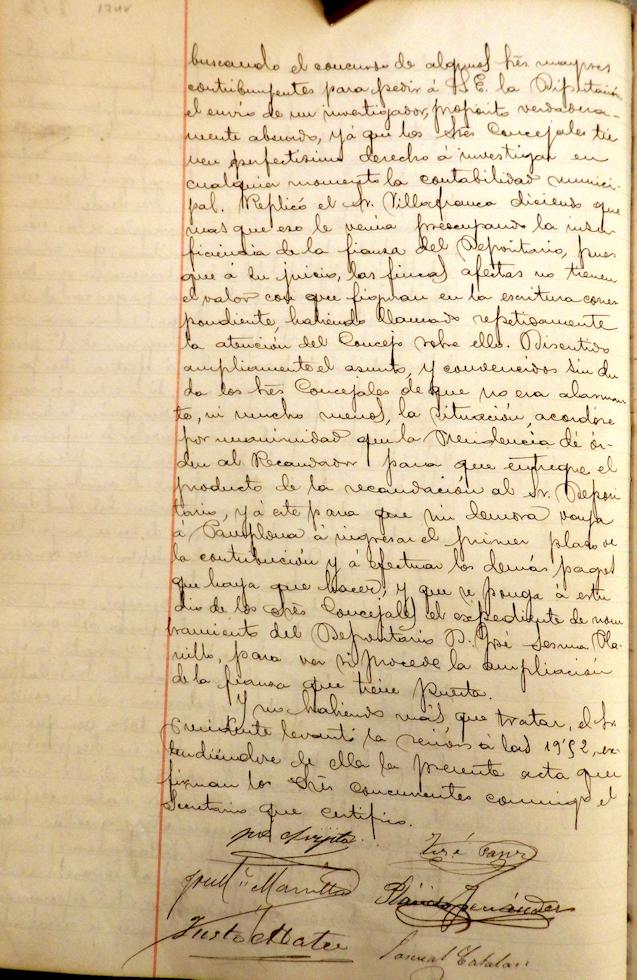 buscando el concurso de algunos Sres mayores
contribuyentes para pedir á S.E. la Diputación
el envío de un investigador, propósito verdadera-
mente absurdo, ya que los Sres Concejales tie-
nen perfectísimo derecho á investigar en
cualquier momento la contabilidad munici-
pal. Replicó el Sr. Villafranca diciendo que
mas que eso le venía preocupando la insu-
ficiencia de la fianza del Depositario, pues
que á su juicio, las fincas afectas no tienen
el valor con que figuran en la escritura corres-
pondiente, habiendo llamado repetidamente
la atención del Concejo sobre ello. Discutido
ampliamente el asunto, y convencidos sin du-
da los Sres Concejales de que no era alarman-
te, ni mucho menos, la situación, acordóse
por unanimidad que la Presidencia dé ór-
den al Recaudador para que entregue el
producto de la recaudación al Sr. Deposi-
tario, y á éste para que sin demora vaya
á Pamplona á ingresar el primer plazo de
la contribución y á efectuar los demás pagos
que haya que hacer; y que se ponga á estu-
dio de los Sres Concejales el expediente de nom-
bramiento del Depositario D. José Sesma
para ver si procede la ampliación
de la fianza que tiene puesta.
Y no habiendo más que tratar, el Sr.
Presidente levantó la sesión á las 19'52, ex-
tendiéndose de ella la presente acta que
firman los Sres Concurrentes conmigo el
Secretario que certifico.
José
Justo Mateo
Pascual Catalan